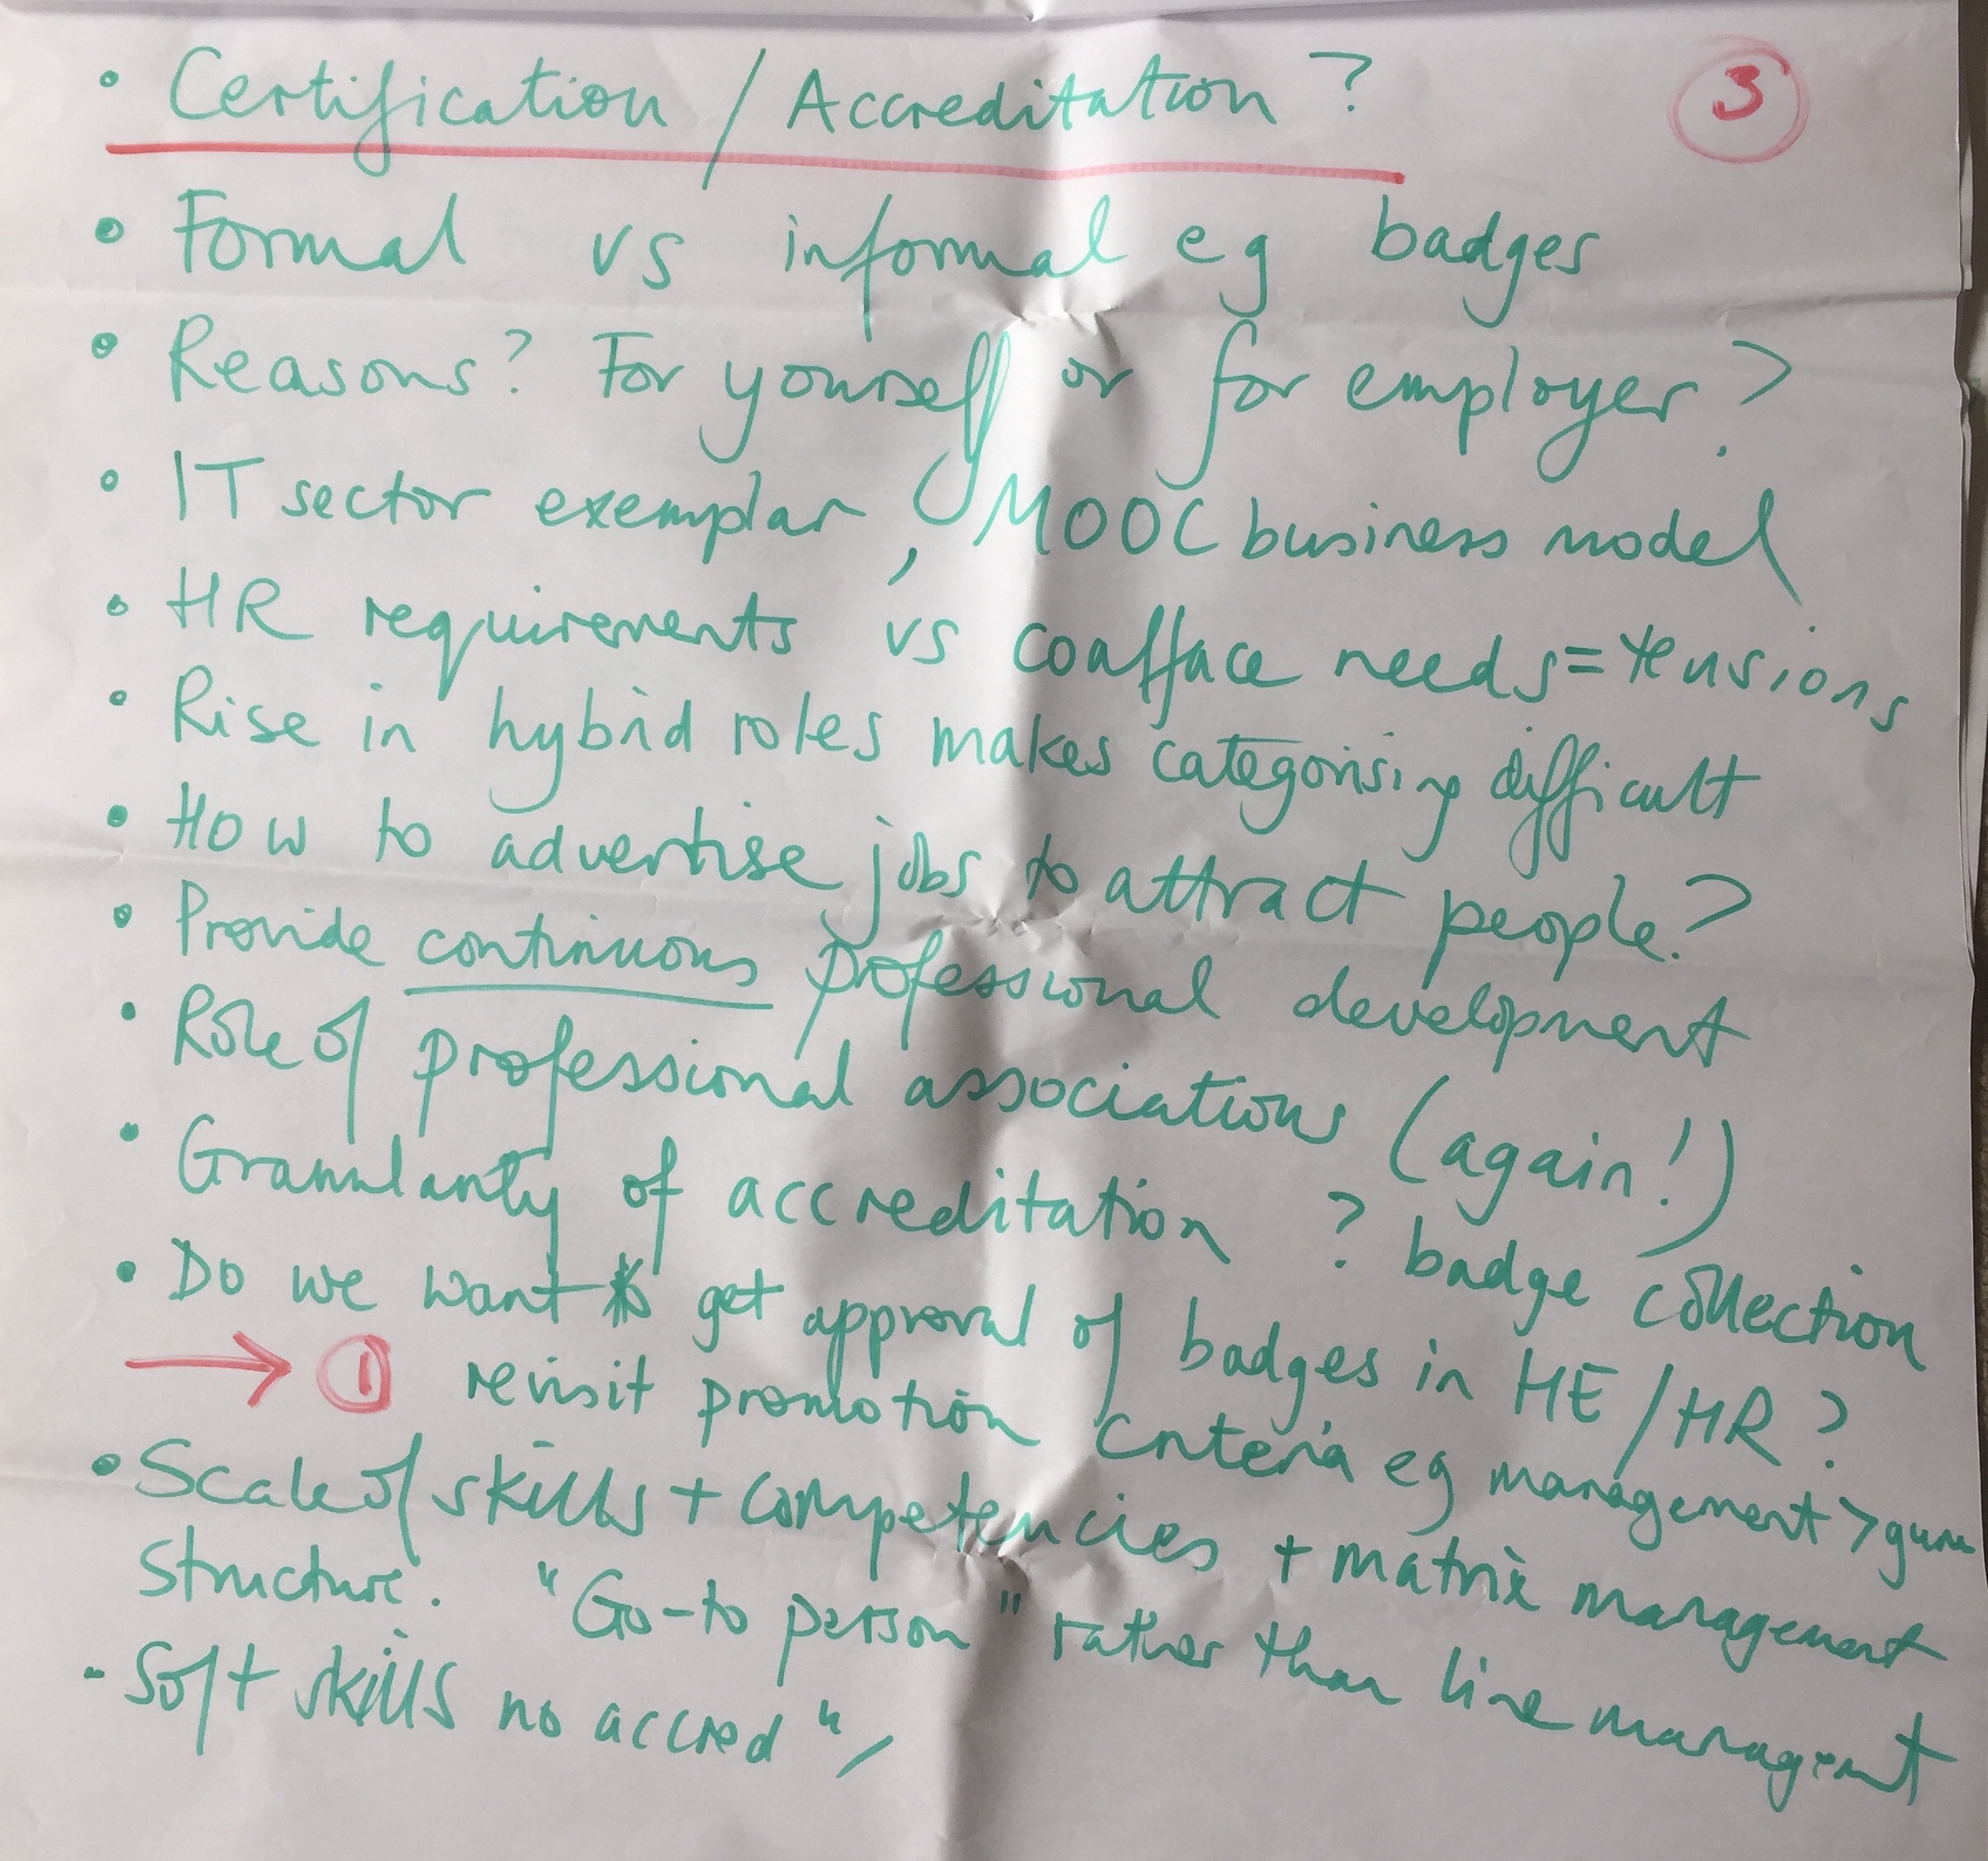 • Certification / Accreditation ?
3
• Formal vs informal eg badges
• Reasons? For yourself or for employer?
• IT sector exemplar, (MOOC business model)
• HR requirements vs coalface needs = tensions
• Rise in hybrid roles makes categorising difficult
• How to advertise jobs to attract people?
• Provide continuous professional development
• Role of professional associations (again!)
• Granularity of accreditation ? badge collection
• Do we want to get approval of badges in HE/HR?
→ 1 revisit promotion criteria eg management > guru
• Scale of skills + competencies + matrix management
structure. "Go-to person" rather than line managemt
- Soft skills no accred "/